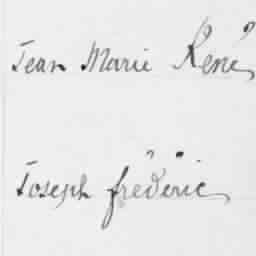 Jean Marie René
Joseph frédéric